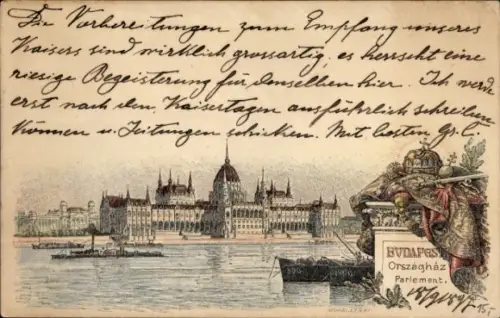 Die Vorbereitungen zum Empfang unseres
Kaisers sind wirklich grossartig, es herrscht eine
riesige Begeisterung für denselben hier. Ich werde
erst nach den Kaisertagen ausführlich schreiben
können u. Zeitungen schicken. Mit besten Gr.
BUDAPEST
Országház
Parlement.
18/9 1897